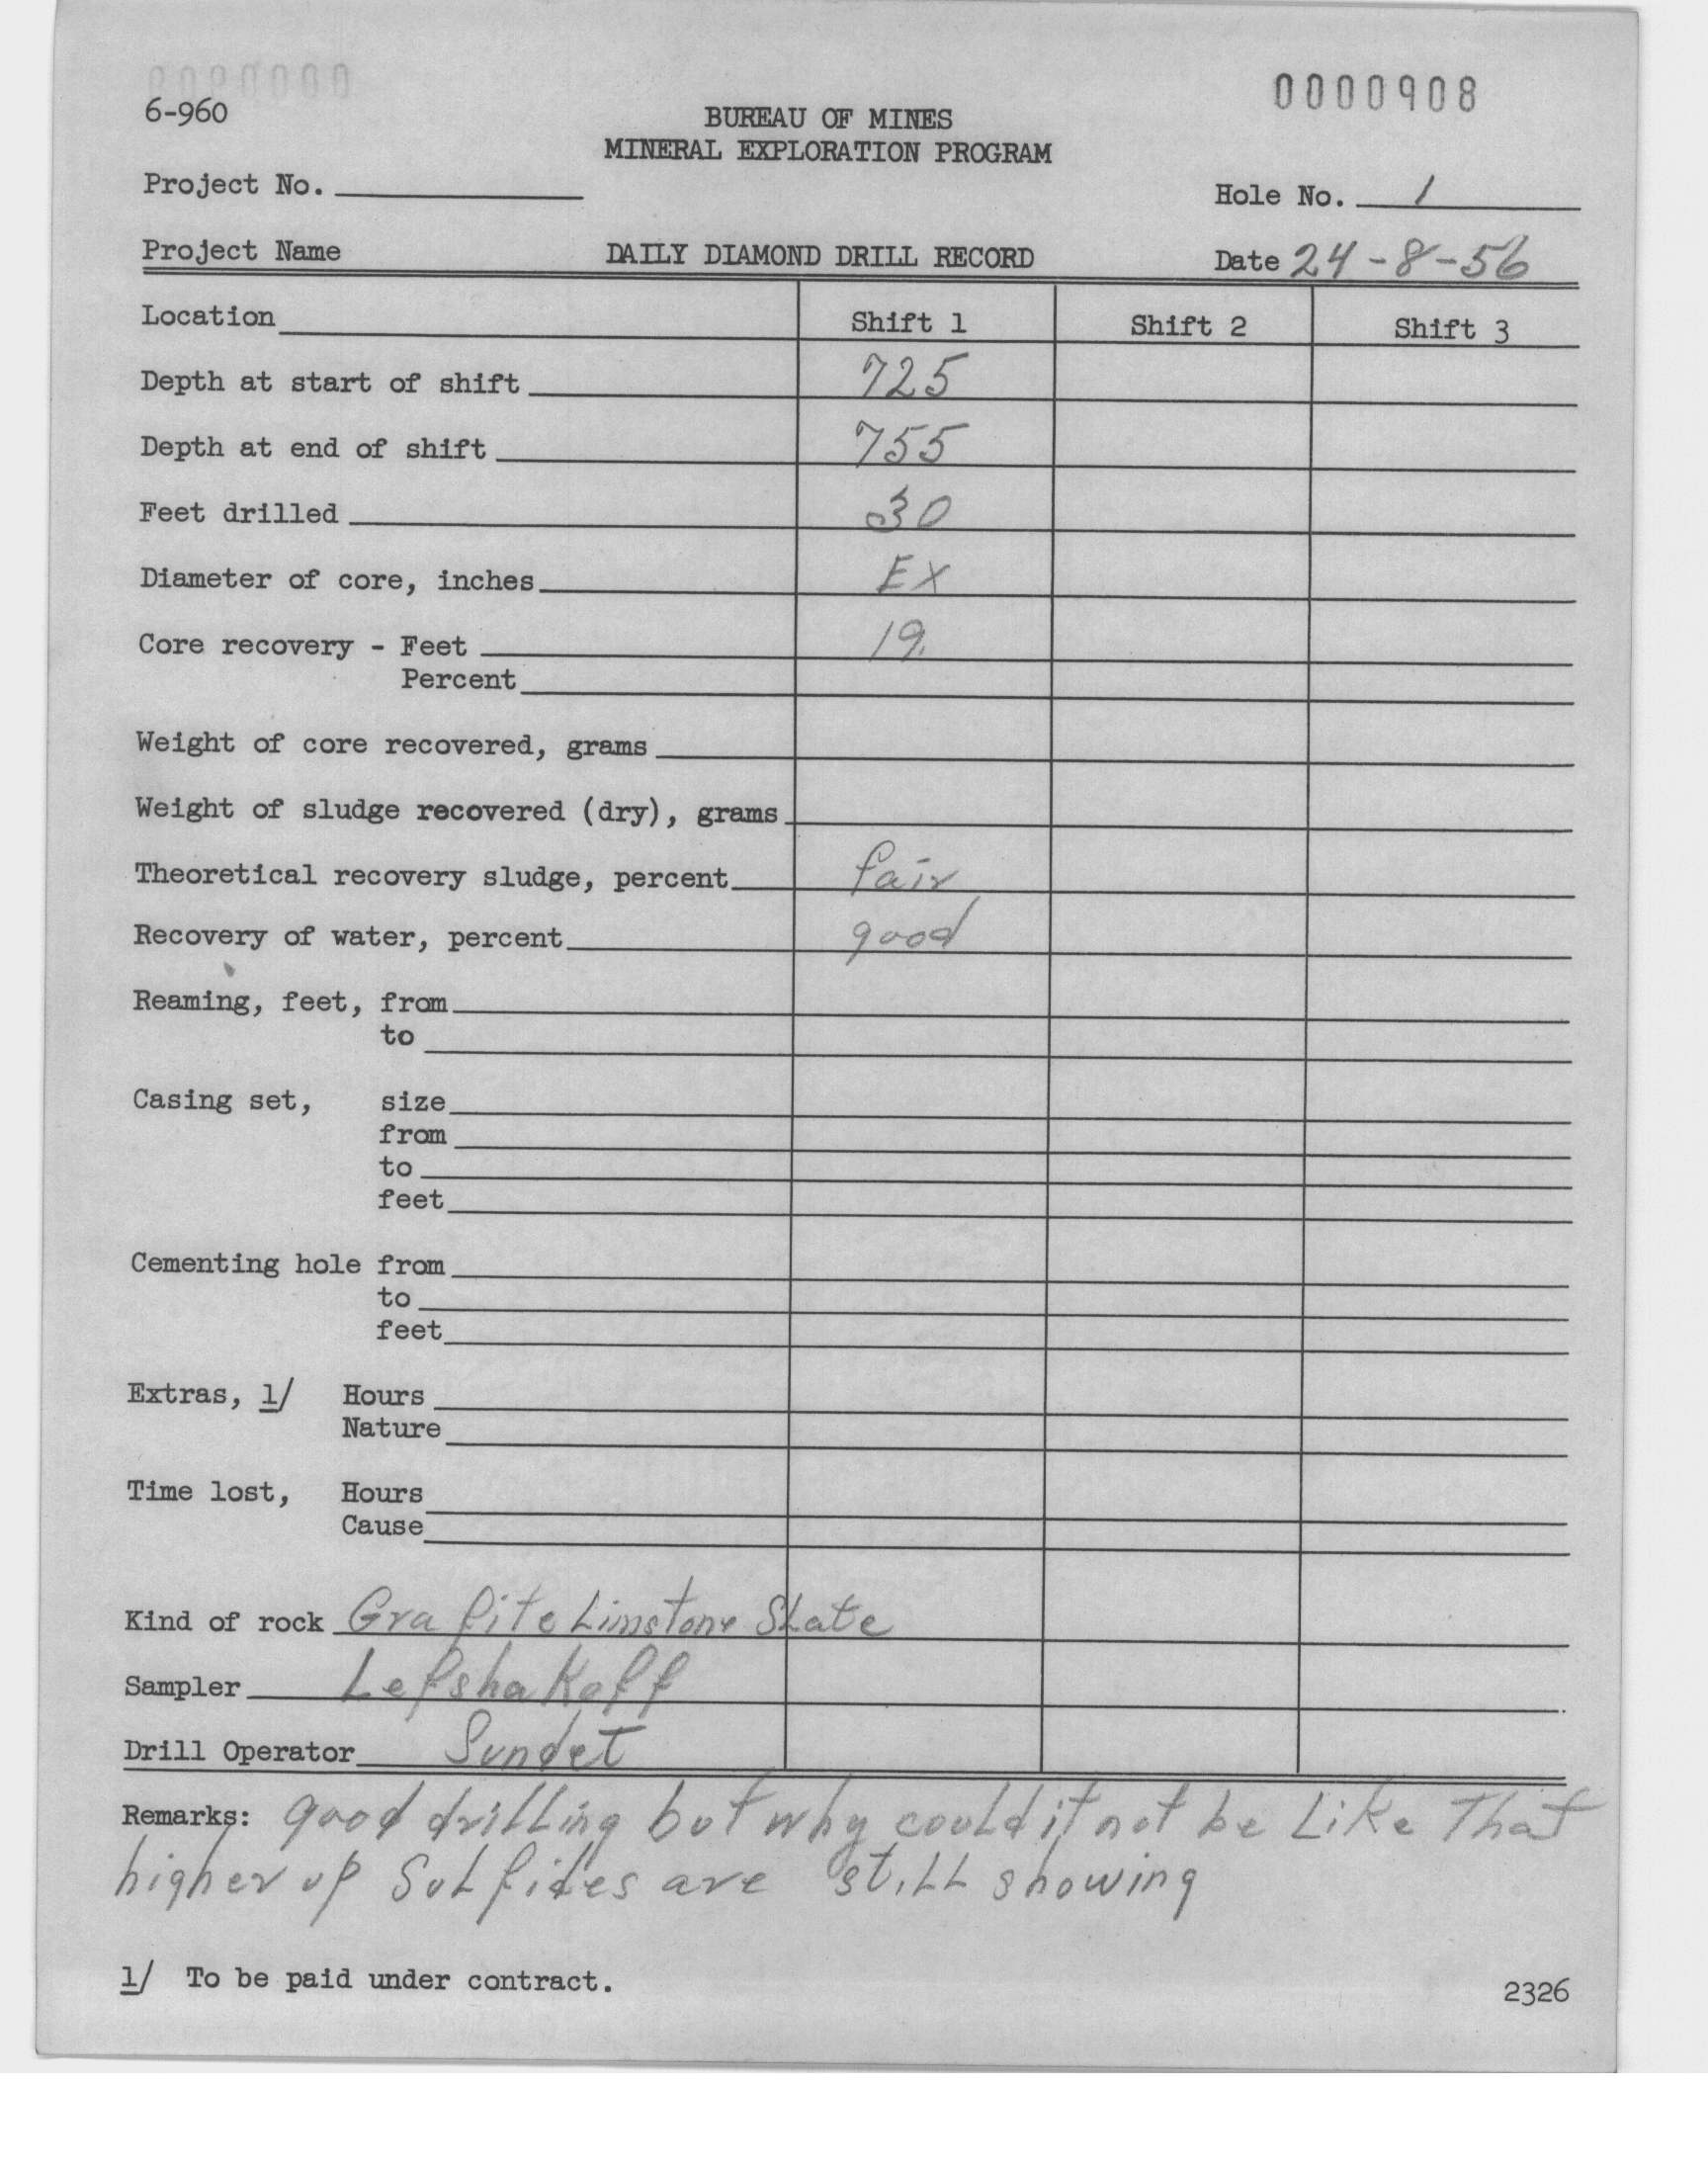 0000908
6-960
BUREAU OF MINES
MINERAL EXPLORATION PROGRAM
Project No.
Hole No. 1
Project Name DAILY DIAMOND DRILL RECORD Date 24-8-56
Location Shift 1 Shift 2 Shift 3
Depth at start of shift 725
Depth at end of shift 755
Feet drilled 30
Diameter of core, inches EX
Core recovery - Feet 19.
Percent
Weight of core recovered, grams
Weight of sludge recovered (dry), grams
Theoretical recovery sludge, percent fair
Recovery of water, percent good
Reaming, feet, from
to
Casing set, size
from
to
feet
Cementing hole from
to
feet
Extras, 1/ Hours
Nature
Time lost, Hours
Cause
Kind of rock Grafite Limstone Slate
Sampler Lefshakoff
Drill Operator Sundet
Remarks: good drilling but why could it not be Like That
higher up Sulfides are still showing
1/ To be paid under contract.
2326